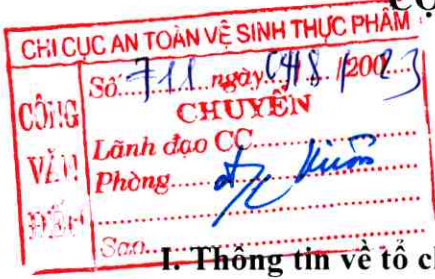 CHI CỤC AN TOÀN VỆ SINH THỰC PHẨM
CÔNG VĂN ĐẾN
Số: 711 ngày 04/8/2023
CHUYỂN
Lãnh đạo CC
Phòng
Sao
I. Thông tin về tổ